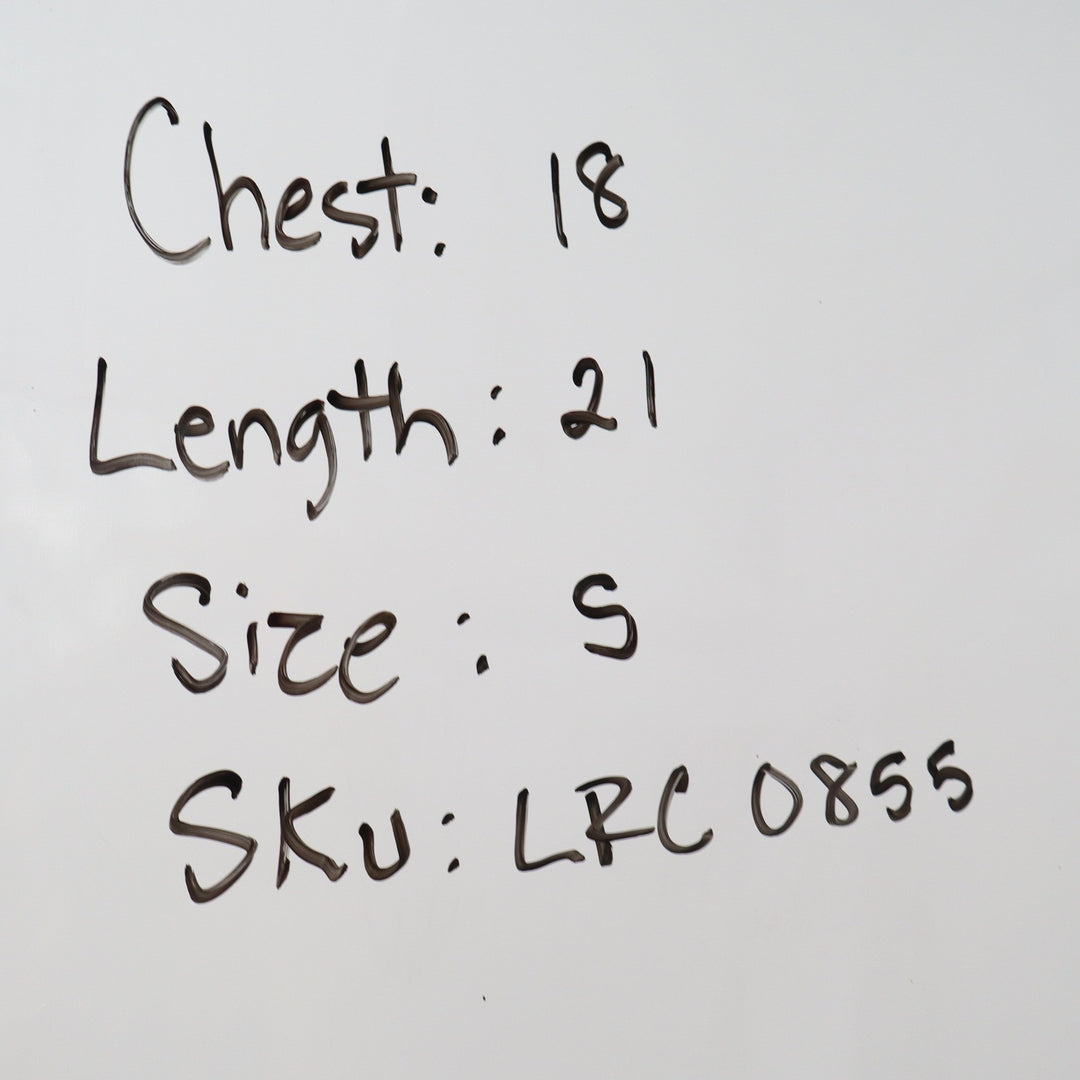 Chest: 18
Length: 21
Size: S
SKu: LRC 0855